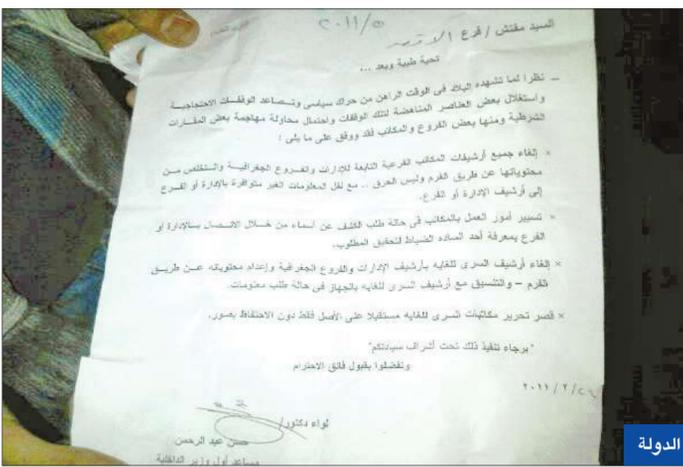 ٢٠١١/٥
السيد مفتش / فرع الاقصر
تحية طيبة وبعد ...
ـ نظرا لما تشهده البلاد فى الوقت الراهن من حراك سياسى وتصاعد الوقفات الاحتجاجية
واستغلال بعض العناصر المناهضة لتلك الوقفات واحتمال محاولة مهاجمة بعض المقارات
الشرطية ومنها بعض الفروع والمكاتب فقد ووفق على ما يلى :
× إلغاء جميع أرشيفات المكاتب الفرعية التابعة للإدارات والفروع الجغرافية والتخلص من
محتوياتها عن طريق الفرم وليس الحرق .. مع نقل المعلومات الغير متوافرة بالإدارة أو الفرع
إلى أرشيف الإدارة أو الفرع.
× تسيير أمور العمل بالمكاتب فى حالة طلب الكشف عن أسماء من خلال الاتصال بالإدارة أو
الفرع بمعرفة أحد الساده الضباط لتحقيق المطلوب.
× إلغاء أرشيف السرى للغايه بأرشيف الإدارات والفروع الجغرافية وإعدام محتوياته عن طريق
الفرم – والتنسيق مع أرشيف السرى للغايه بالجهاز فى حالة طلب معلومات.
× قصر تحرير مكاتبات السرى للغايه مستقبلا على الأصل فقط دون الاحتفاظ بصور.
"برجاء تنفيذ ذلك تحت أشراف سيادتكم"
وتفضلوا بقبول فائق الاحترام
٢٠١١/٢/
لواء دكتور/
حسن عبد الرحمن
مساعد أول وزير الداخلية
الدولة